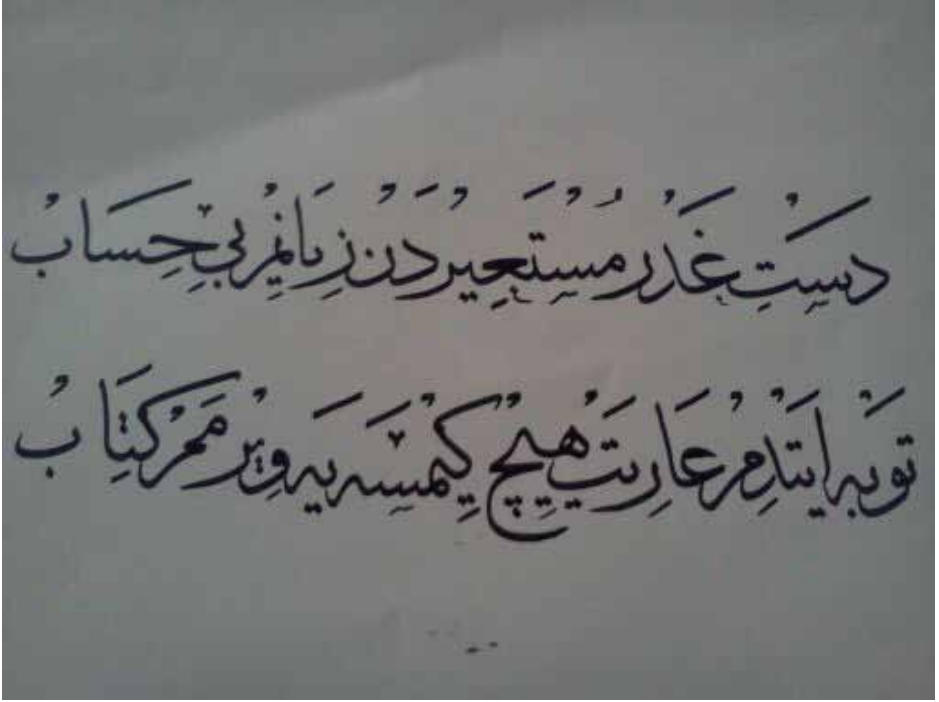 دَسْتِ غَدْرِ مُسْتَعِيرْدَنْ زِيَانِمْ بِي حِسَابْ
تَوْبَه اِيتَدِمْ عَارِيَتْ هِيچْ كِيمْسَه يَه وِيْرمَمْ كِتَابْ